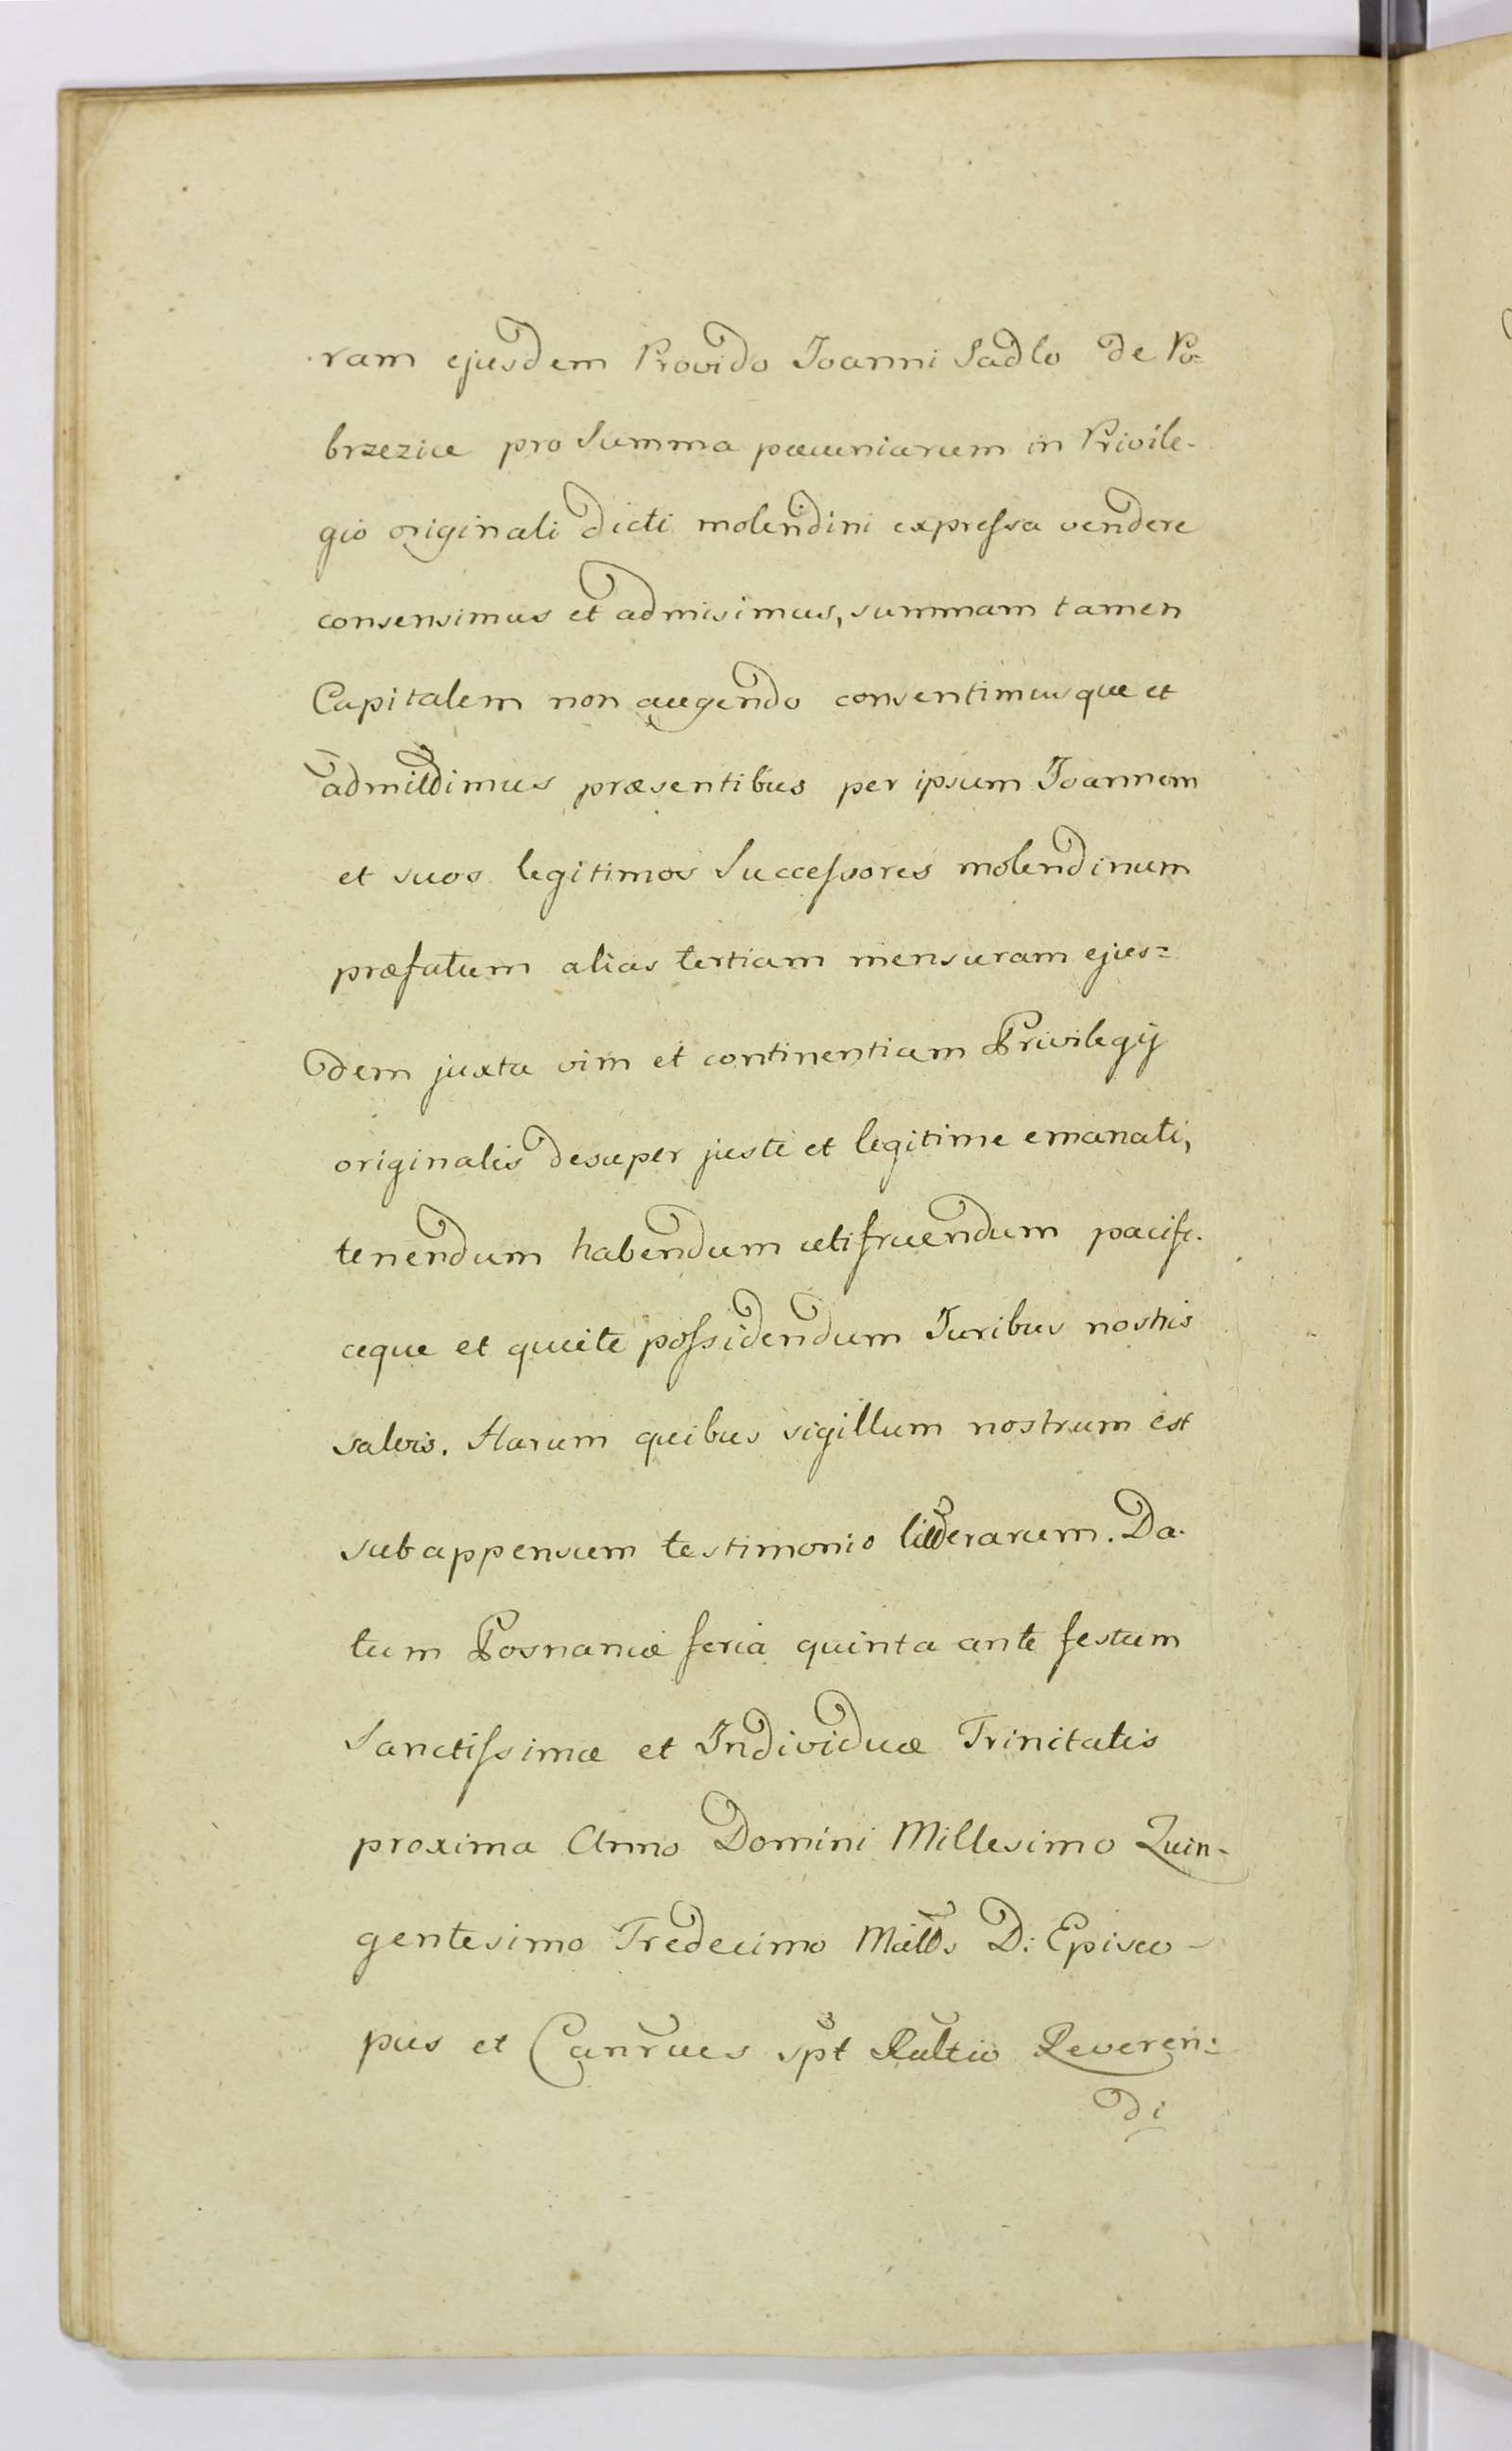 ram ejusdem Provido Joanni Sadlo de Po=
brzezice pro Summa pæcuniarum in Privile-
gio originali dicti molendini expressa vendere
consensimus et admisimus, summam tamen
Capitalem non augendo consentimusque et
admittimus præsentibus per ipsum Joannem
et suos legitimos Successores molendinum
præfatum alias tertiam mensuram ejus=
dem juxta vim et continentiam Privilegij
originalis desuper juste et legitime emanati,
tenendum habendum utifruendum pacifi-
ceque et quiete possidendum Juribus nostris
salvis. Harum quibus sigillum nostrum est
subappensum testimonio litterarum. Da-
tum Posnaniæ feria quinta ante festum
Sanctissimæ et Individuæ Trinitatis
proxima Anno Domini Millesimo Quin-
gentesimo Tredecimo D: Episco-
pus et spt Reveren=
di